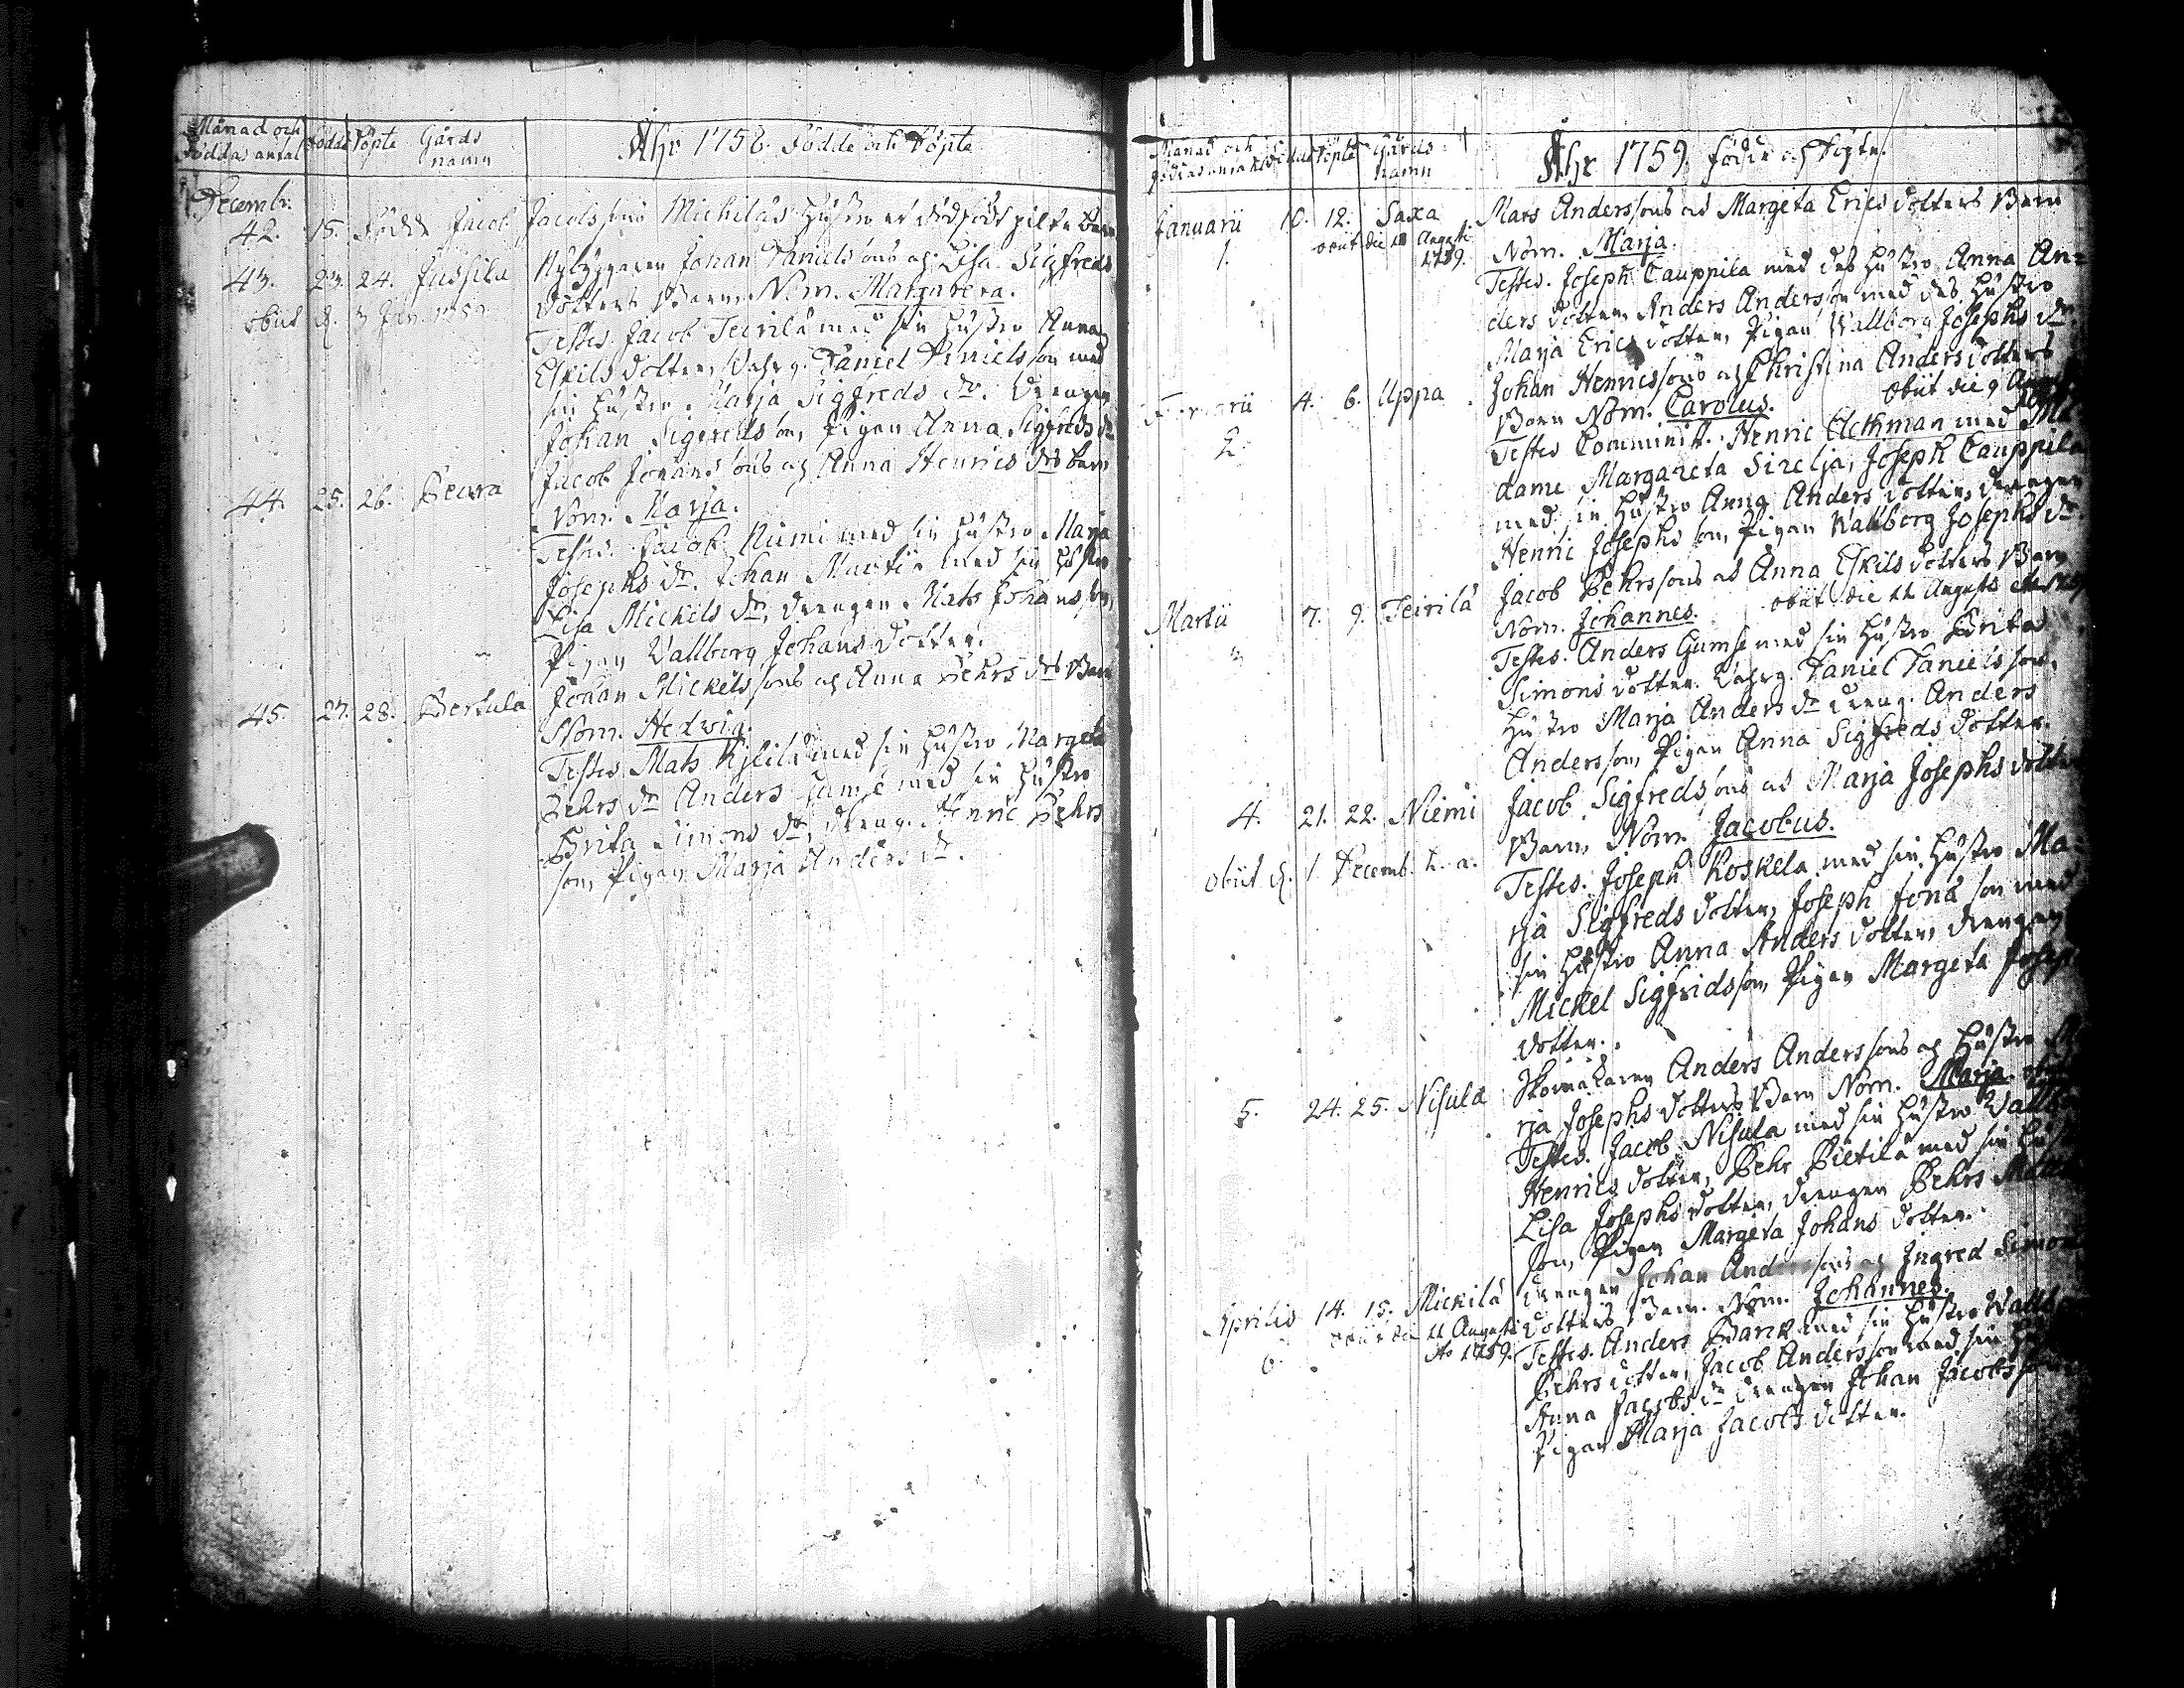 Månad och
Föddas antal Födde Döpte Gårds namn Åhr 1758. Födde och Döpte
Decemb:
42. 15. Födde Jacob Jacobssons Michilas Hustro et dödfödt pilte barn
43. 23. 24. Jussila Nybyggaren Johan Danielssons och Lisa Sigfreds
dotters Barn. Nom. Margareta.
obiit d. 3 Jan. 1759
Testes. Jacob Teirilä med sin Hustro Anna
Eskils dotter, Daniel Danielsson med
sin Hustro Marja Sigfreds dr. Drengen
Johan Sigfredsson, Pigan Anna Sigfreds dr
44. 25. 26. Beura Jacob Johanssons och Anna Henrics drs barn
Nom. Marja.
Testes. Jacob Niemi med sin Hustro Marja
Josephs dr. Johan Martti med sin Hustro
Lisa Mickels dr, Drengen Mats Johansson,
Pigan Wallborg Johans dotter.
45. 27. 28. Bertula Johan Mickelssons och Anna Pehrs drs Barn
Nom. Hedwig.
Testes Mats med sin Hustro Margeta
Pehrs dr Anders Gumse med sin Hustro
Brita Simons dr, dreng. Henric Pehrs
son, Pigan Marja Anders dr.
Månad och
Födde Döpte Gårds namn Åhr 1759 födde och Döpte.
Januarii 10. 12. Saxa Mats Anderssons och Margeta Erics dotters Barn
1. obiit die Augusti 1759. Nom. Marja.
Testes. Joseph Cauppila med des Hustro Anna An=
ders dotter, Anders Andersson med des Hustro
Marja Erics dotter, Pigan Wallborg Josephs dr.
Februarii 4. 6. Uppa Johan Henricssons och Christina Anders dotters
2. Barn Nom. Carolus. obiit die 9
Testes Comminist. Henric Aethman med Ma
dame Margareta Sirelja, Joseph Cauppila
med sin Hustro Anna Anders dotter, drengen
Henric Josephs son, Pigan Wallborg Josephs dr.
Martii 7. 9. Teirilä Jacob Pehrssons och Anna Eskils dotters Barn
3 Nom. Johannes. obiit die 11 Augusti
Testes. Anders Gumse med sin Hustro Brita
Simons dotter. Daniel Danielssons
Hustro Marja Anders dr dreng. Anders
Andersson, Pigan Anna Sigfreds dotter.
4. 21. 22. Niemi Jacob Sigfredssons och Marja Josephs dotters
Barn, Nom. Jacobus.
obiit d. 1 Decemb. h. a. Testes. Joseph Koskela med sin Hustro Ma=
rja Sigfreds dotter, Joseph Jonä son med
sin Hustro Anna Anders dotter, drengen
Mickel Sigfridsson, Pigan Margeta Joseps
dotter.
5. 24. 25. Nisula Skomakaren Anders Anderssons och Hustro Ma
rja Josephs dotters Barn Nom. Marja
Testes. Jacob Nisula med sin Hustro Wallb
Henrics dotter, Pehr Pietilä med sin Hust
Lisa Josephs dotter, drengen Pehrs
son, Pigan Margeta Johans dotter.
Aprilis 14. 15. Mickilä Drengen Johan Anderssons och Ingred Simons
obiit die 11 Augusti Ao 1759. dotters Barn. Nom. Johannes.
6. Testes. Anders Barck med sin Hustro Wallb
Pehrs dotter, Jacob Andersson med sin Hu
Anna Jacobs dr drengen Johan Jacobsson
Pigan Marja Jacobs dotter.